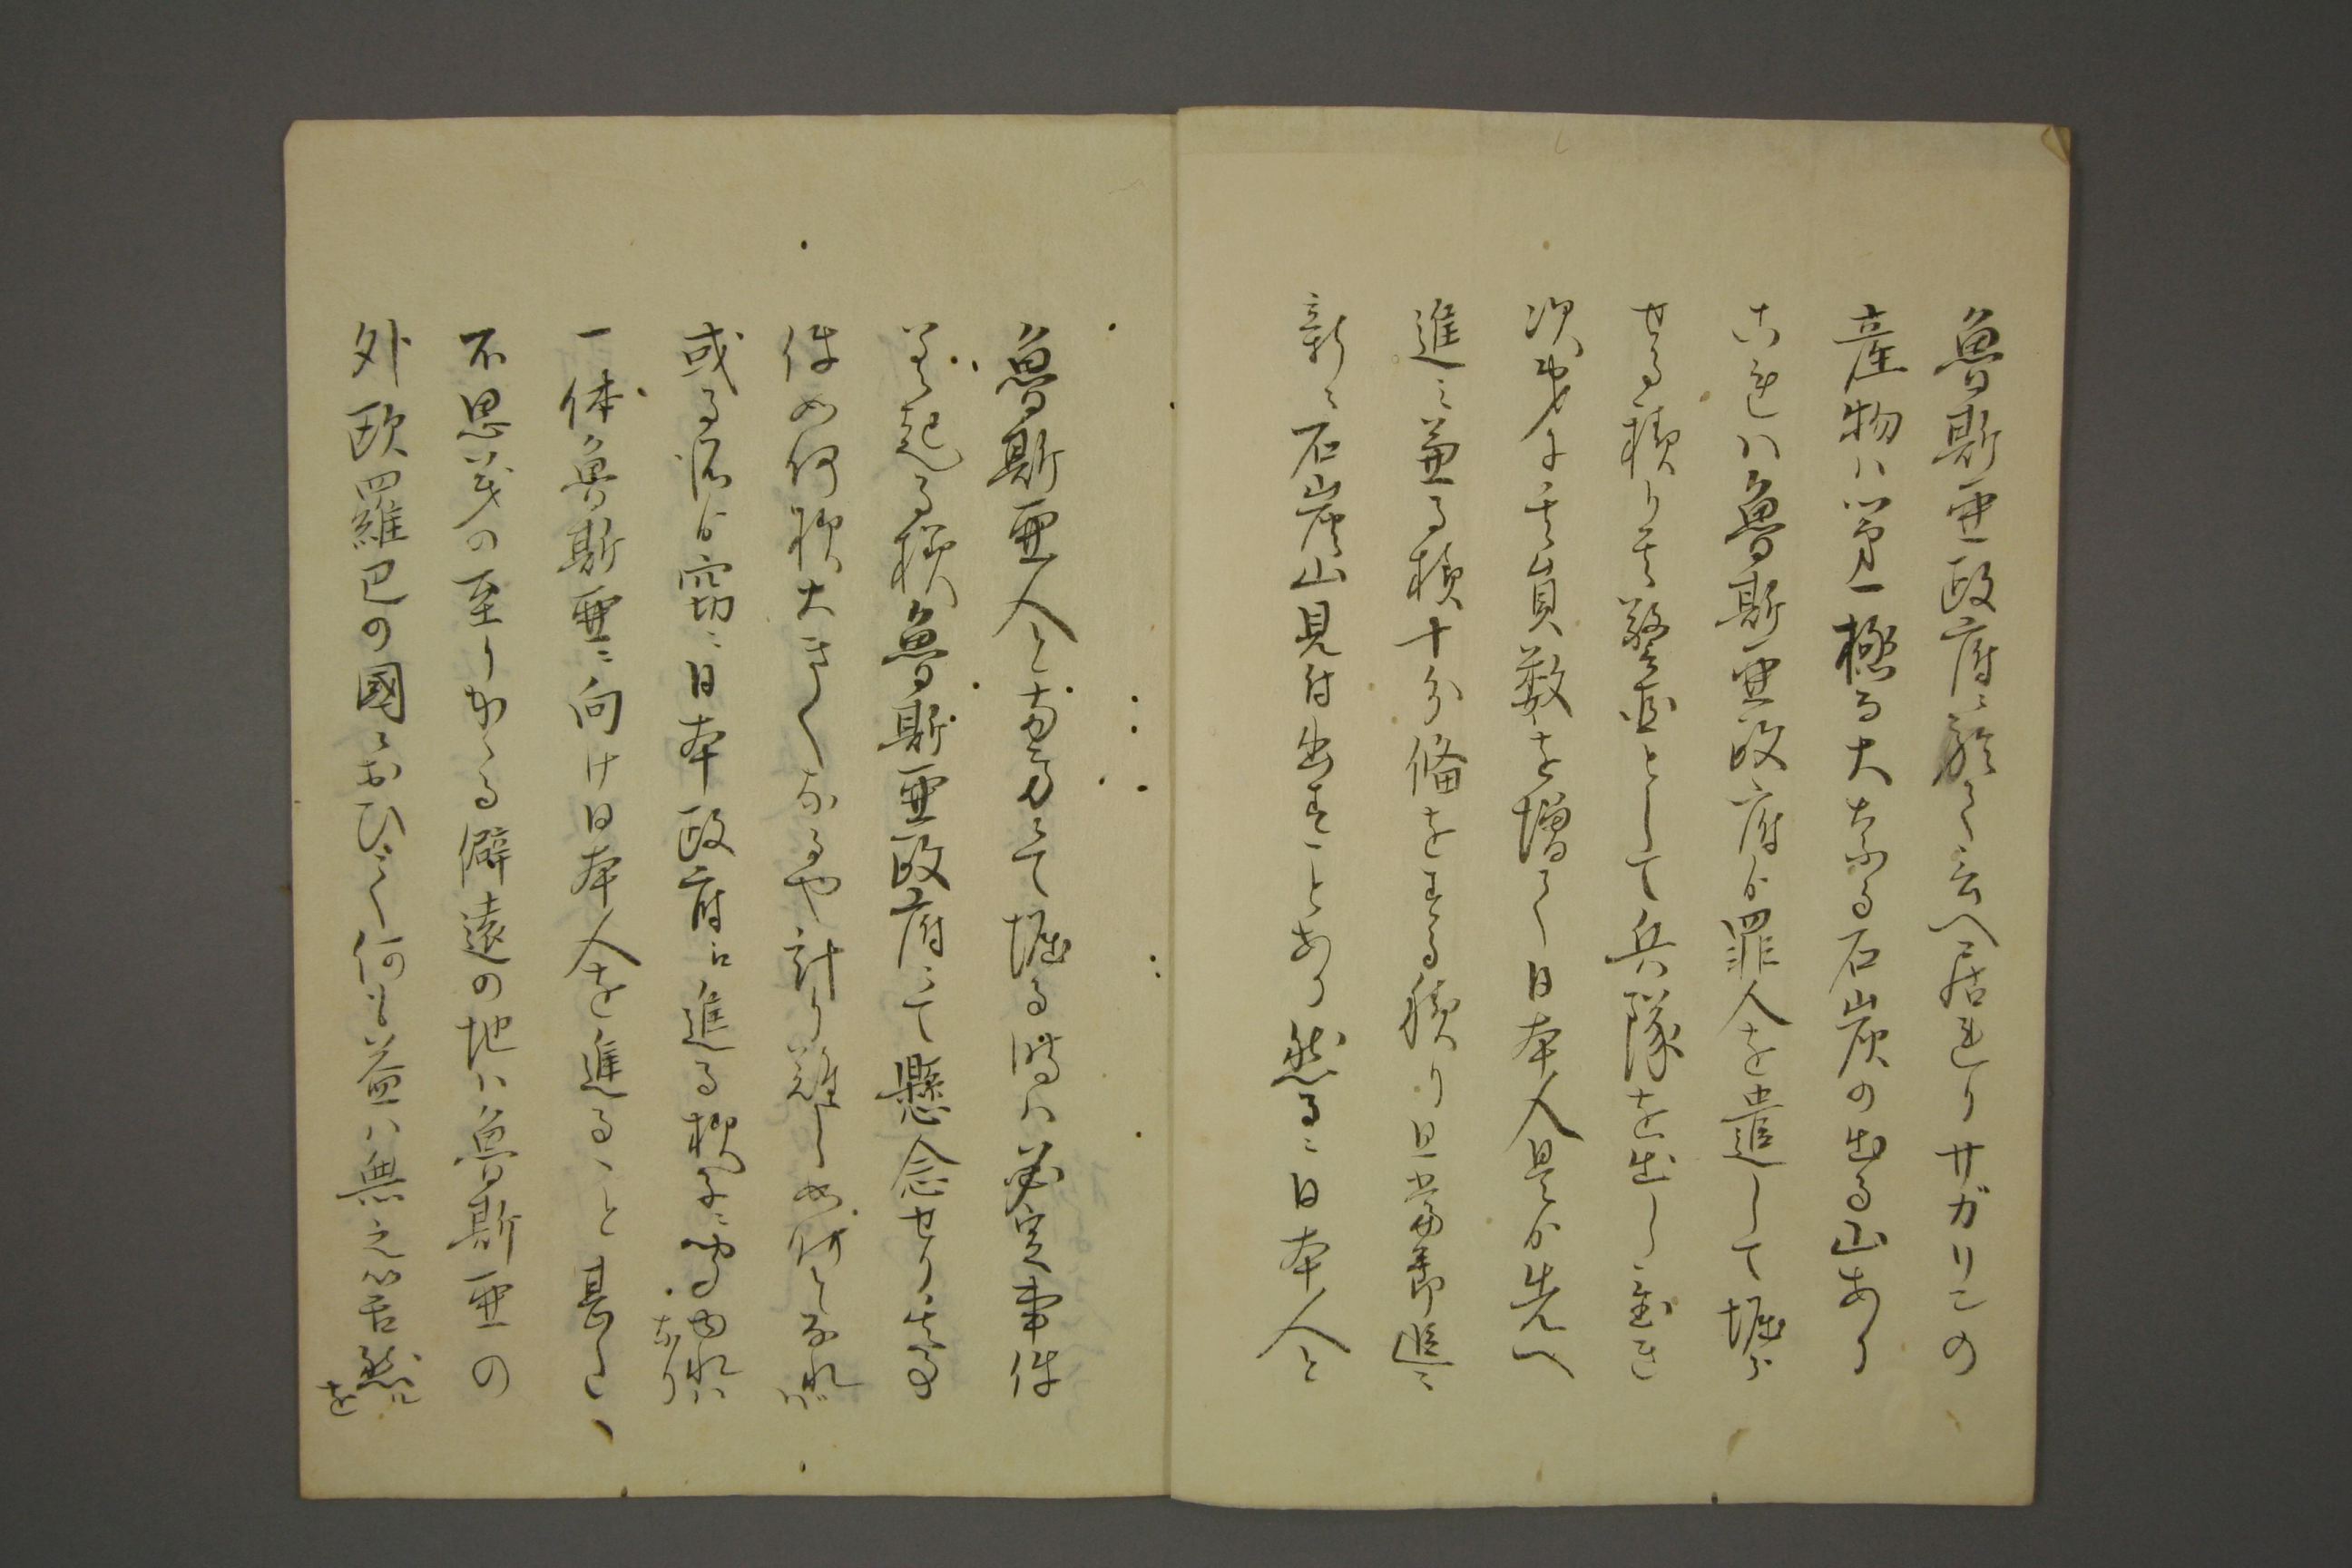 魯斯亜政府ニ於て云へ居れりサガリンの
産物ハ第一極る大なる石炭の出る山あり
是ハ魯斯亜政府ゟ罪人を遣して堀ら
せる積り其警固として兵隊を出し置き
次第ニ其員数を増て日本人是か先へ
進ミ兼る様十分備をする積り且当節追ミ
新ニ石炭山見付出すことあり然るニ日本人と
魯斯亜人と両方にて堀る時ハ必定事件
差起る様魯斯亜政府にて懸念せり其事
件如何程大きくなるや計り難し如何となれば
或る府ゟ窃ニ日本政府江進る様子ニ聞ゆれハなり
一体魯斯亜ニ向け日本人を進るゝと甚し
不思義の至りかゝる僻遠の地ハ魯斯亜の
外欧羅巴の國ニおひて何も益ハ無之筈然を